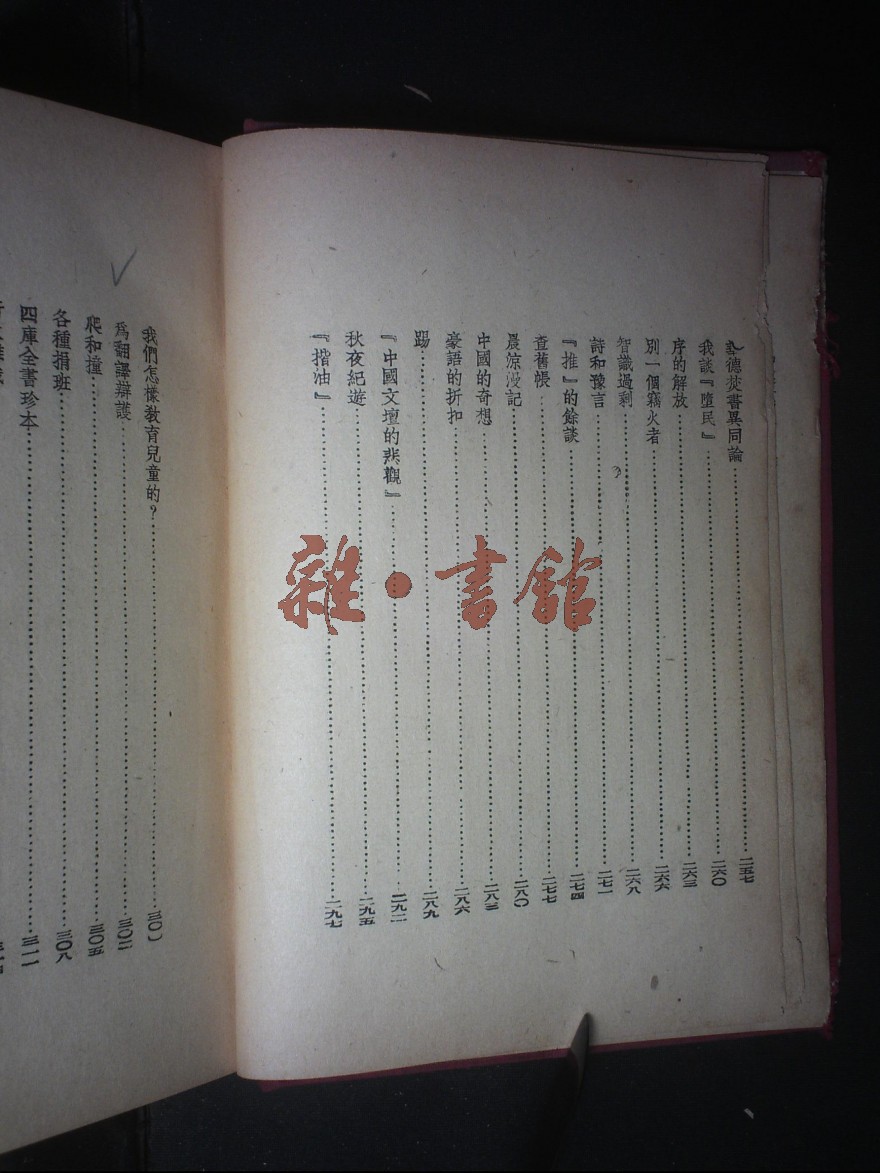 德焚書異同論……二五七
我談『墮民』……二六〇
序的解放……二六三
別一個竊火者……二六六
智識過剩……二六八
詩和豫言……二七一
『推』的餘談……二七四
查舊帳……二七七
晨涼漫記……二八〇
中國的奇想……二八三
豪語的折扣……二八六
踢……二八九
『中國文壇的悲觀』……二九二
秋夜紀遊……二九五
『揩油』……二九七
我們怎樣教育兒童的？……三〇一
爲翻譯辯護……三〇二
爬和撞……三〇五
各種捐班……三〇八
四庫全書珍本……三一一
雜·書館